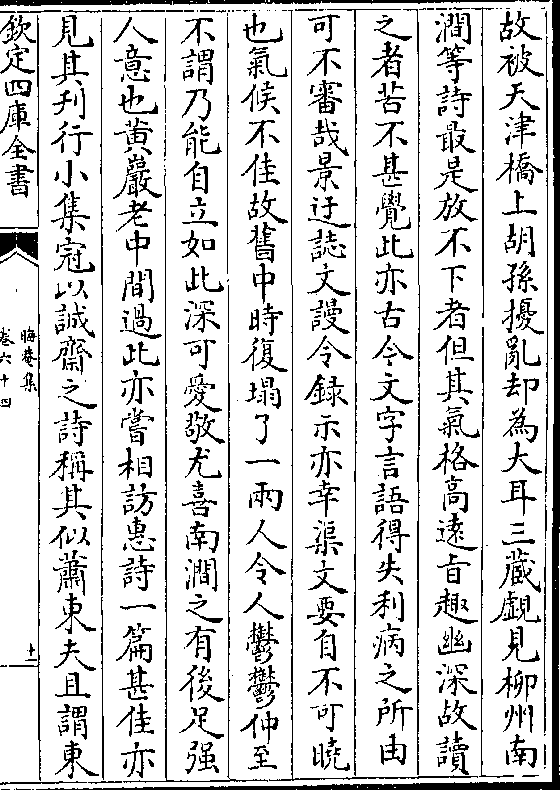 故被天津橋上胡孫擾亂却為大耳三藏覷見柳州南
澗等詩最是放不下者但其氣格高遠旨趣幽深故讀
之者苦不甚覺此亦古今文字言語得失利病之所由
可不審哉景迂誌文謾令録示亦幸渠文要自不可曉
也氣候不佳故舊中時復塌了一兩人令人鬱鬱仲至
不謂乃能自立如此深可愛敬尤喜南澗之有後足强
人意也黄巖老中間過此亦嘗相訪惠詩一篇甚佳亦
見其刋行小集冠以誠齋之詩稱其似蕭東夫且謂東
欽定四庫全書
晦菴集
卷六十四
十一